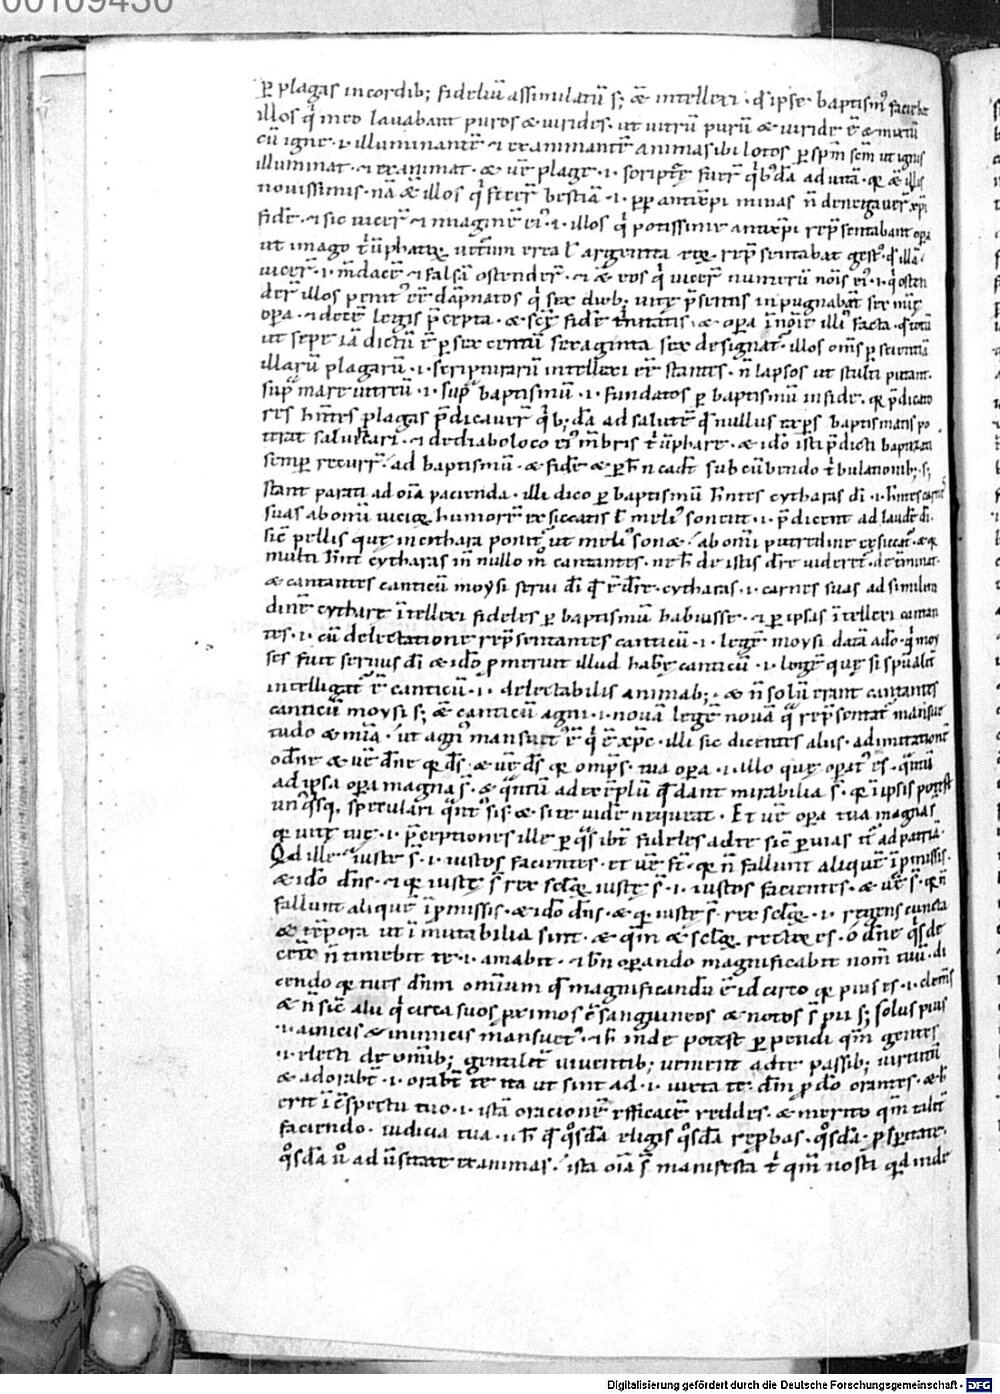 00109430
ꝑ plagas in cordib; fideliū assimulatū s; & intellexi · qđ ipse baptism᷒
illos q̇ in eo lavabant puros & virides · ut vitrū purū & viride ē & mixtū
cū igne · i · illuminantē ⁊ examinantē animas ibi lotos ꝑ spm̄ scm̄ ut ignis
illuminat · ⁊ examinat · & vē plage · i · scripturę
novissimis · nā & illos q̇ bestiā · i · ꝓp antixp̄i minas n̄ denegaver̄ xp̄i
fidē · ⁊ sic vicer̄ ⁊ imaginē ei᷒ · i · illos q̇ potissime antixp̄i rep̄sentabant oꝑa
ut imago vetrum erea ł argentea rep̄sentabat
vicer̄ · i · mdacē ⁊ falsā ostender̄ · ⁊ & eos q̇ vicer̄ numerū nōis ei᷒ · i · q̇ osten
der̄ illos penit᷒ eē dāpnatos q̇ sex dieb; vitę p̄sentis inpugnabāt sex
oꝑa · ⁊ decē legis p̄cepta · & scē fidē trinitatis · & oꝑa ī noīe illi᷒ facta ·
ut sepe iā dictū ē ꝑ sexcentū sexaginta sex designat᷒ · illos om̄s ꝑ scientiā
illarū plagarū · i · scripturarū intellexi eē stantes · n̄ lapsos ut stulti putant ·
suꝑ mare vitreū · i · suꝑ baptismū · i · fundatos ꝑ baptismū in fide · q̄ p̄dicato
res hn̄tes plagas p̄dicaver̄ q̇b; dā ad salutē qđ nullus baptismatis po
terat salvari · ⁊ de diabolo & ei᷒ mēbris · & idō isti p̄dicti baptizati
semꝑ recurr̄ · ad baptismū · & fidē & ꝑ h n̄ cadt̄ subcūbendo tbulationib; s;
stant parati ad oīa pacienda · illi dico ꝑ baptismū hn̄tes cytharas dī · i · hn̄tes carnes
suas ab omī viciorum humorē exsiccatis ut meli᷒ sonent · i · p̄dicent ad laudē dī ·
sic̄ pellis quę in cythara ponit᷒ ut meli᷒ sonet / ab omī putredine exsiccat᷒ ·
multi hn̄t cytharas in nullo m̄ cantantes · ne h de istis dr̄e videret᷒ ·
& cantantes canticū moysi servi dī · cytharas · i · carnes suas ad similitu
dinē cytharę ītellexi fideles ꝑ baptismū habuisse · ⁊ ꝑ ipsas ītellexi cantan
tes · i · cū delectatione rep̄sentantes canticū · i · legē moysi datā a dō · q̇ moy
ses fuit servus dī & idō ꝓmeruit illud habere canticū · i · legē quę si spūalit̄
intelligat᷒ ē canticū · i · delectabilis animab; · & n̄ solū erant cantantes
canticū moysi s; & canticū agni · i · novā legē novā q̄ rep̄sentat᷒ mansue
tudo & mīa · ut agn᷒ mansuet᷒ ē q̇ ē xp̄c · illi sic dicentes aliis · ad imitationē
o dn̄e & vē dn̄e q̄ ds̄ · & vē ds̄ q̄ omp̄s · tua oꝑa · i · illo que oꝑat᷒ es · quantū
ad ipsa oꝑa magna s̄ · & quantū ad exēplū qđ dant mirabilia s̄ · q̄ ī ipsis potest
un᷒ qisq; speculari quant᷒ sis · & si te vidē nequeat · Et vē oꝑa tua magna s̄
q̄ vitę tuę · i · p̄ceptiones ille ꝑ qs ibt̄ fideles ad te sic̄ ꝑ vias it᷒ ad patriā ·
Qđ ille iuste s̄ · i · iustos facientes · et vē st̄ · q̄ n̄ fallunt aliquē ī ꝓmissis ·
& idō dn̄s · ⁊ q̄ iustę s̄ rex sclorum iustę s̄ · i · iustos facientes · & vē s̄ · q̄ n̄
fallunt aliquē ī ꝓmissis · & idō dn̄s · & q̄ iuste s̄ · rex sclorum · i · regens cuncta
& tēpora ut īmutabilia sint · & qm̄ & sclorum rector es · ō dn̄e qis de
cetē n̄ timebit te · i · amabit · ⁊ bn̄ oꝑando magnificabit nom̄ tuū · di
cendo q̄ tu es dn̄m omnium qđ magnificandū ē idcirco q̄ pius es · i · clem̄s
& n̄ sic̄ alii q̇ circa suos primos cōsanguineos & notos s̄ pii s; solus pius
· i · amicis & inimicis mansuet᷒ · ⁊ h inde potest ꝑpendi qm̄ gentes
· i · electi de omīb; gentilit̄ viventib; venient ad te passib; virtutū
& adorabt̄ · i · orabt̄ te ita ut sint ad · i · iuxta te · dm̄ ꝓ dō orantes · & h
erit ī cōspectu tuo · i · istā orationē efficacē reddes · & merito qm̄ talit̄
faciendo · iudicia tua · i · h qđ qosdā eligis qosdā reꝓbas · qosdā ·
qosdā v̊ ad examinas / ista oīa s̄ manifesta t qm̄ nosti quid inde
Digitalisierung gefördert durch die Deutsche Forschungsgemeinschaft · DFG